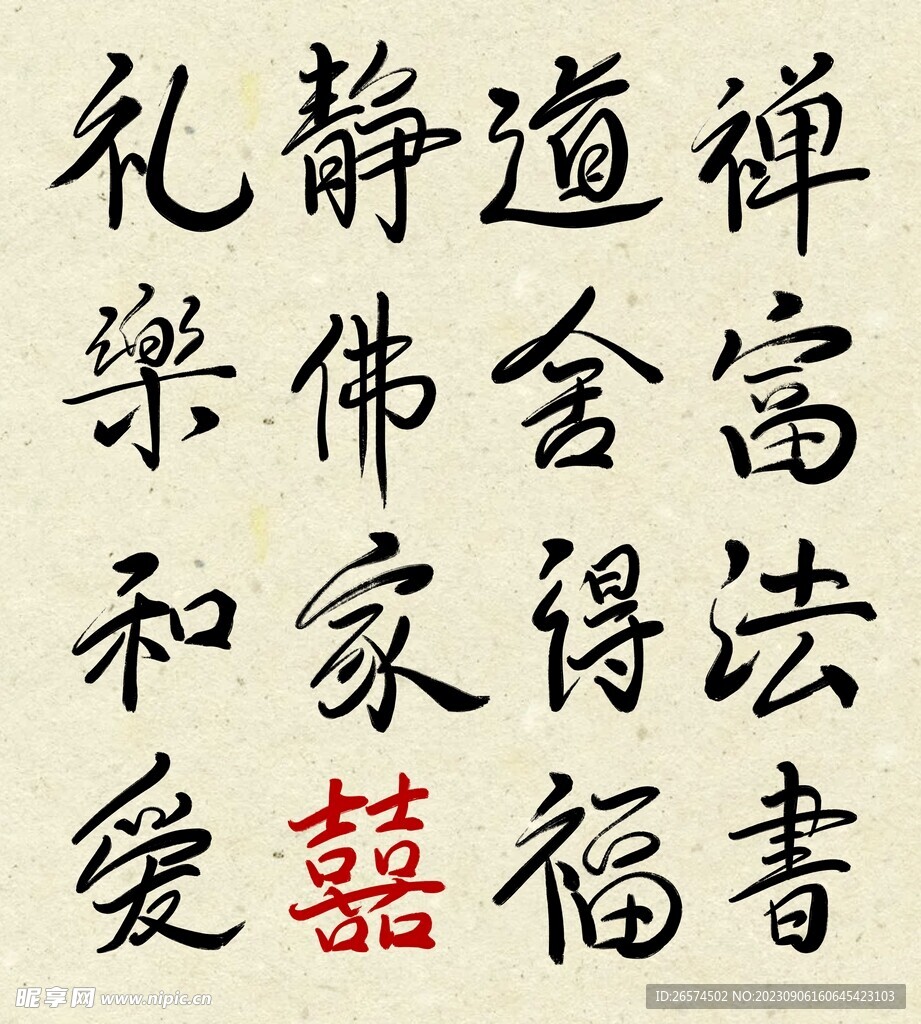 礼静道禅
樂佛舍富
和家得法
爱囍福書
昵享网 www.nipic.cn
ID:26574502 NO:20230906160645423103